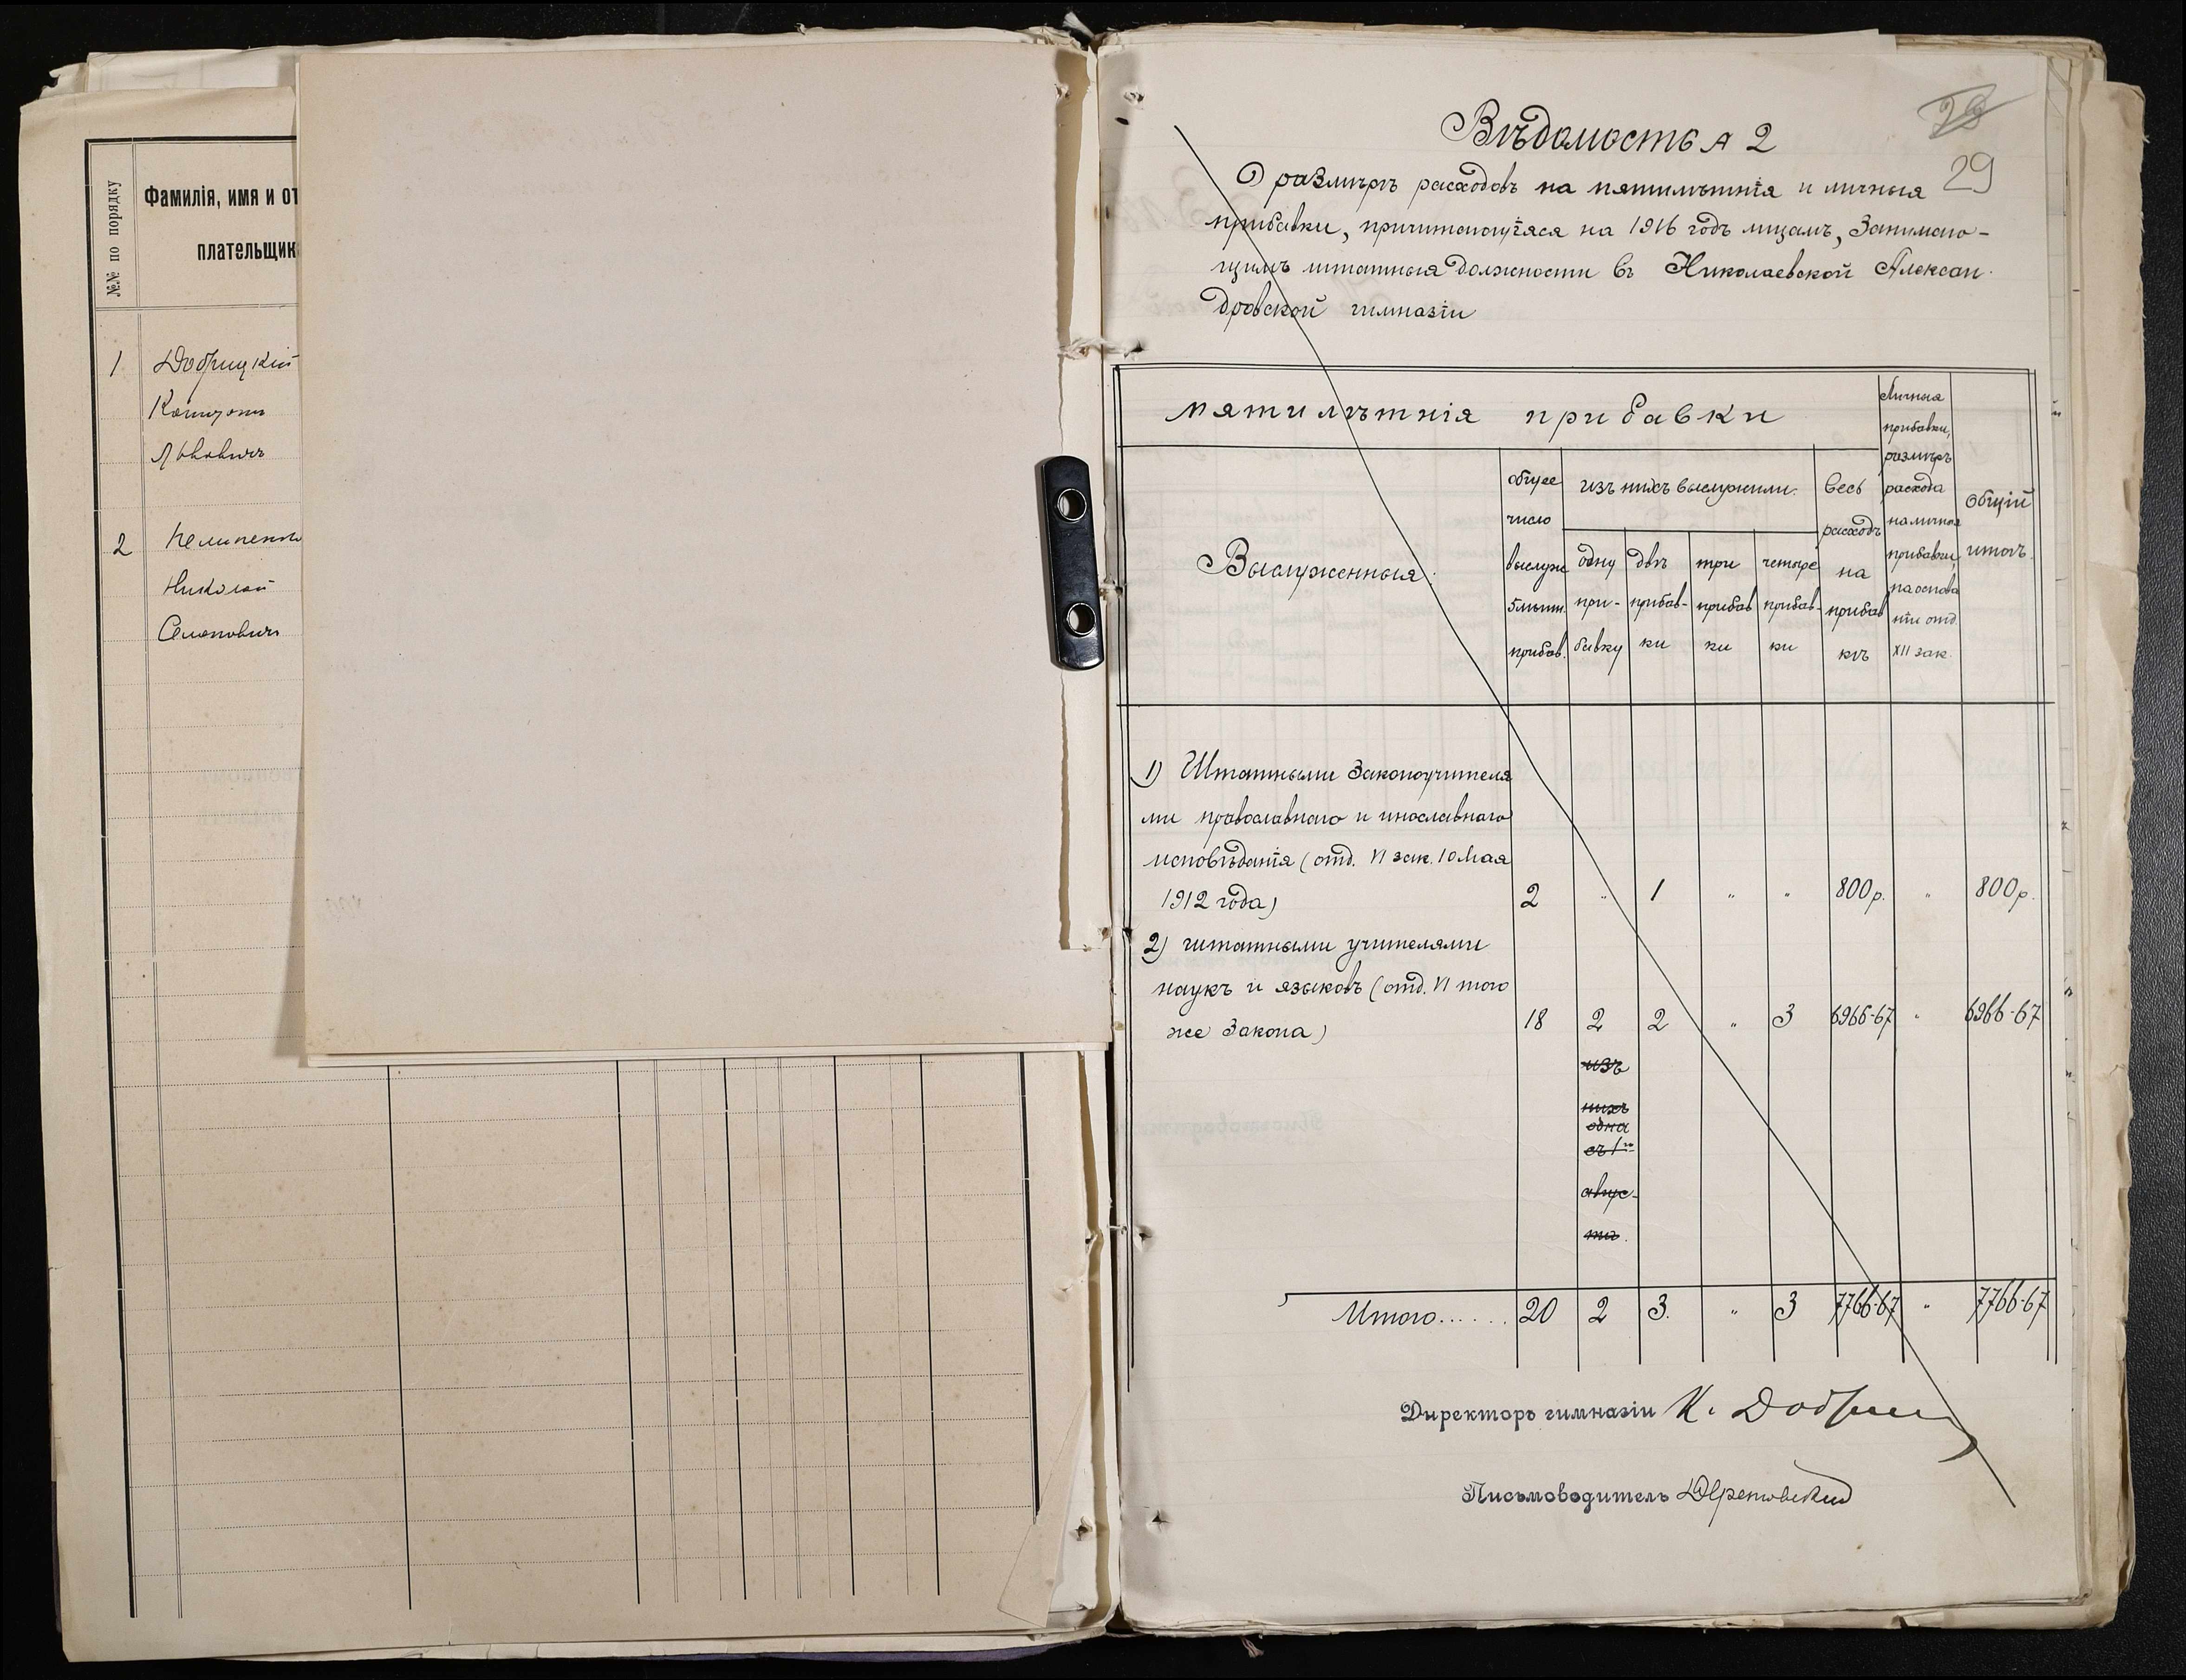 №№ по порядку
Фамилія, имя и от
плательщик
1 Добрицкій
Львовичъ
2
Николай
Семеновичъ
28
29
Вѣдомость А 2
О размѣрѣ расходовъ на пятилѣтнія и личныя
прибавки, причитающіяся на 1916 годъ лицамъ, занимаю-
щимъ штатныя должности въ Николаевской Алексан-
дровской гимназіи
пятилѣтнія прибавки
Выслуженныя:
общее
число
выслуж
5лѣтн.
прибав.
изъ нихъ выслужили:
одну
при-
бавку
двѣ
прибав-
ки
три
прибав
ки
четыре
прибав-
ки
весь
расходъ
на
прибав
кѣ
Личныя
прибавки,
размѣръ
расхода
на личныя
прибавки,
на основа
ніи отд.
XII зак.
Общій
итогъ.
1) Штатными законоучителя
ми православнаго и инославнаго
исповѣданія (отд. VI зак. 10 Мая
1912 года) 2 " 1 " " 800 р. " 800 р.
2) штатными учителями
наукъ и языковъ (отд. VI того
же закона) 18 2 2 " 3 6966-67 " 6966-67
изъ
нихъ
одна
съ 1го
авгус-
та.
Итого...... 20 2 3. " 3 7766-67 " 7766-67
Директоръ гимназіи К. Добриц
Письмоводитель